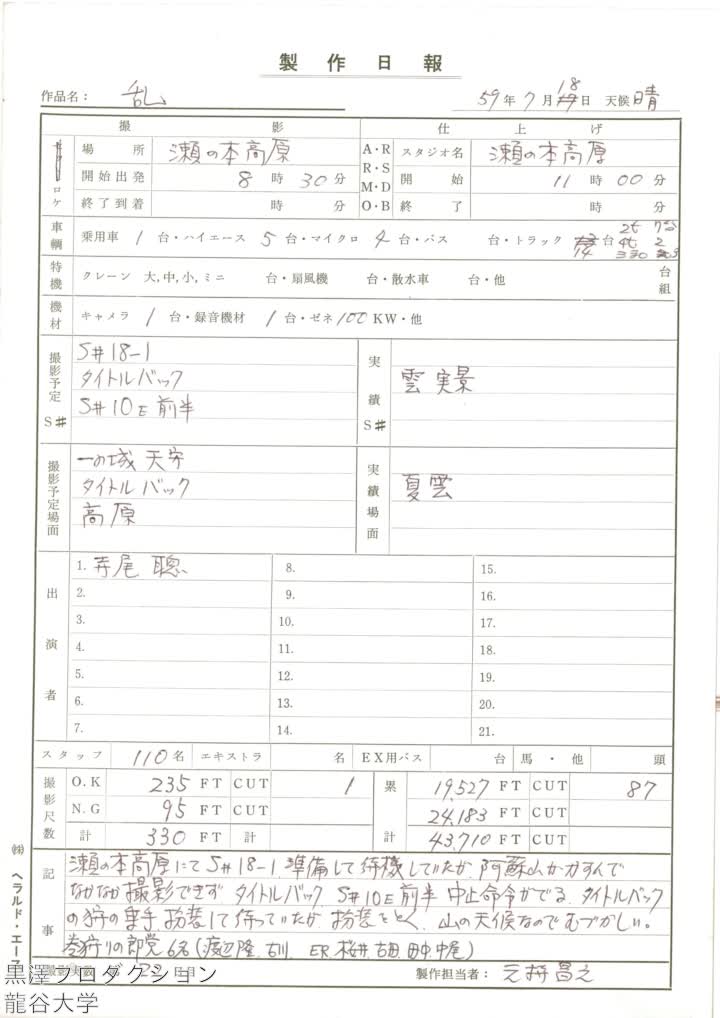 製作日報
作品名： 乱
59年7月18日 天候 晴
撮影 仕上げ
ロケ
場所 瀬の本高原 A・R スタジオ名 瀬の本高原
開始出発 8時30分 R・S M・D 開始 11時00分
終了到着 時 分 O・B 終了 時 分
車輌 乗用車 1台・ハイエース 5台・マイクロ 4台・バス 台・トラック 14台
特機 クレーン 大,中,小,ミニ 台・扇風機 台・散水車 台・他 台組
機材 キャメラ 1台・録音機材 1台・ゼネ100KW・他
撮影予定 S#
S#18-1
タイトルバック
S#10E 前半
実績 S#
雲 実景
撮影予定場面
一の城 天守
タイトルバック
高原
実績場面
夏雲
出演者
1. 寺尾 聰 8. 15.
2. 9. 16.
3. 10. 17.
4. 11. 18.
5. 12. 19.
6. 13. 20.
7. 14. 21.
スタッフ 110名 エキストラ 名 EX用バス 台 馬・他 頭
撮影尺数
O.K 235 FT CUT 1 累 19,527 FT CUT 87
N.G 95 FT CUT 24,183 FT CUT
計 330 FT 計 計 43,710 FT CUT
記事
瀬の本高原にてS#18-1 準備して待機していたが、阿蘇山がかすんで
なかなか撮影できず タイトルバック、S#10E 前半 中止命令がでる。タイトルバック
の狩の乗手 扮装して待っていたが 扮装をとく。山の天候なのでむづかしい。
巻狩りの郎党6名(渡辺隆、古川、ER、桜井、吉田、田中、中尾)
撮影実数 日目
製作担当者：
㈱ ヘラルド・エース
黒澤プロダクション
龍谷大学